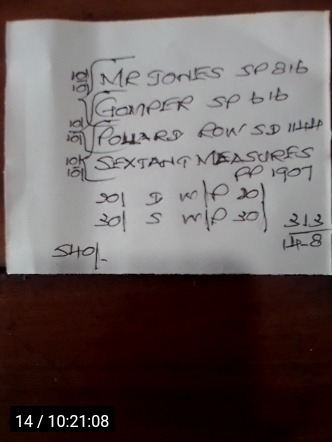 10/ 10/ MR JONES SP 816
GOMPER SP 616
10/ 10/ POLLARD ROW SD 1144
10/ 10/ SEXTANT MEASURES
PP 1907
30/ D W/P 20/
30/ S W/P 30/
313
14-8
S40/-
14 / 10:21:08